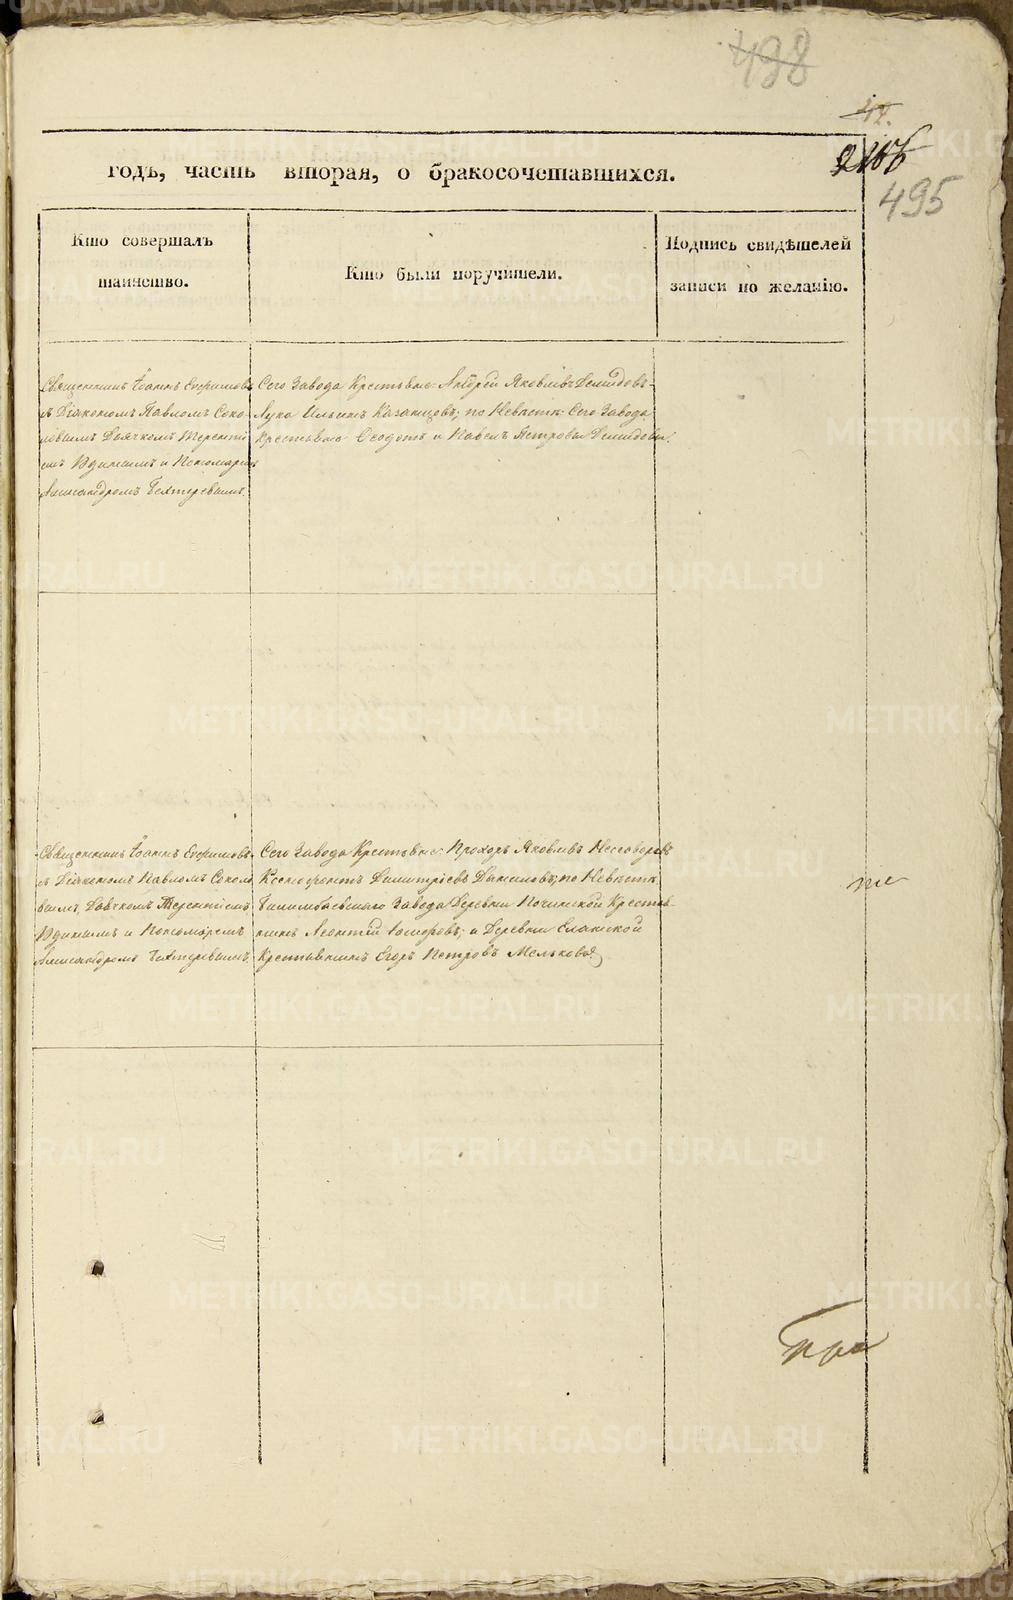 498
42.
495
годъ, часть вторая, о бракосочетавшихся.
Кто совершалъ таинство.
Кто были поручители.
Подпись свидѣтелей записи по желанію.
Священникъ Іоаннъ Ефимовъ
съ Діакономъ Павломъ Соко-
ловымъ Дьячкомъ Теренті-
емъ Удинцымъ и Пономаремъ
Александромъ Бехтеревымъ.
Сего Завода Крестьяне Андрей Яковлевъ Демидовъ
Лука Ильинъ Казанцовъ; по Невѣстѣ: Сего Завода
Крестьяне Ѳеодотъ и Павелъ Петровы Демидовы.
Священникъ Іоаннъ Ефимовъ
съ Діакономъ Павломъ Соколо
вымъ, Дьячкомъ Терентіемъ
Удинцымъ и Пономаремъ
Александромъ Бехтеревымъ.
Сего Завода Крестьяне: Прохоръ Яковлевъ
Ксенофонтъ Димитріевъ Даниловъ; по Невѣстѣ:
Билимбаевскаго Завода Деревни Починской Крестья-
нинъ Леонтій; и Деревни Еланской
Крестьянинъ Егоръ Петровъ Мельковъ
METRIKI.GASO-URAL.RU